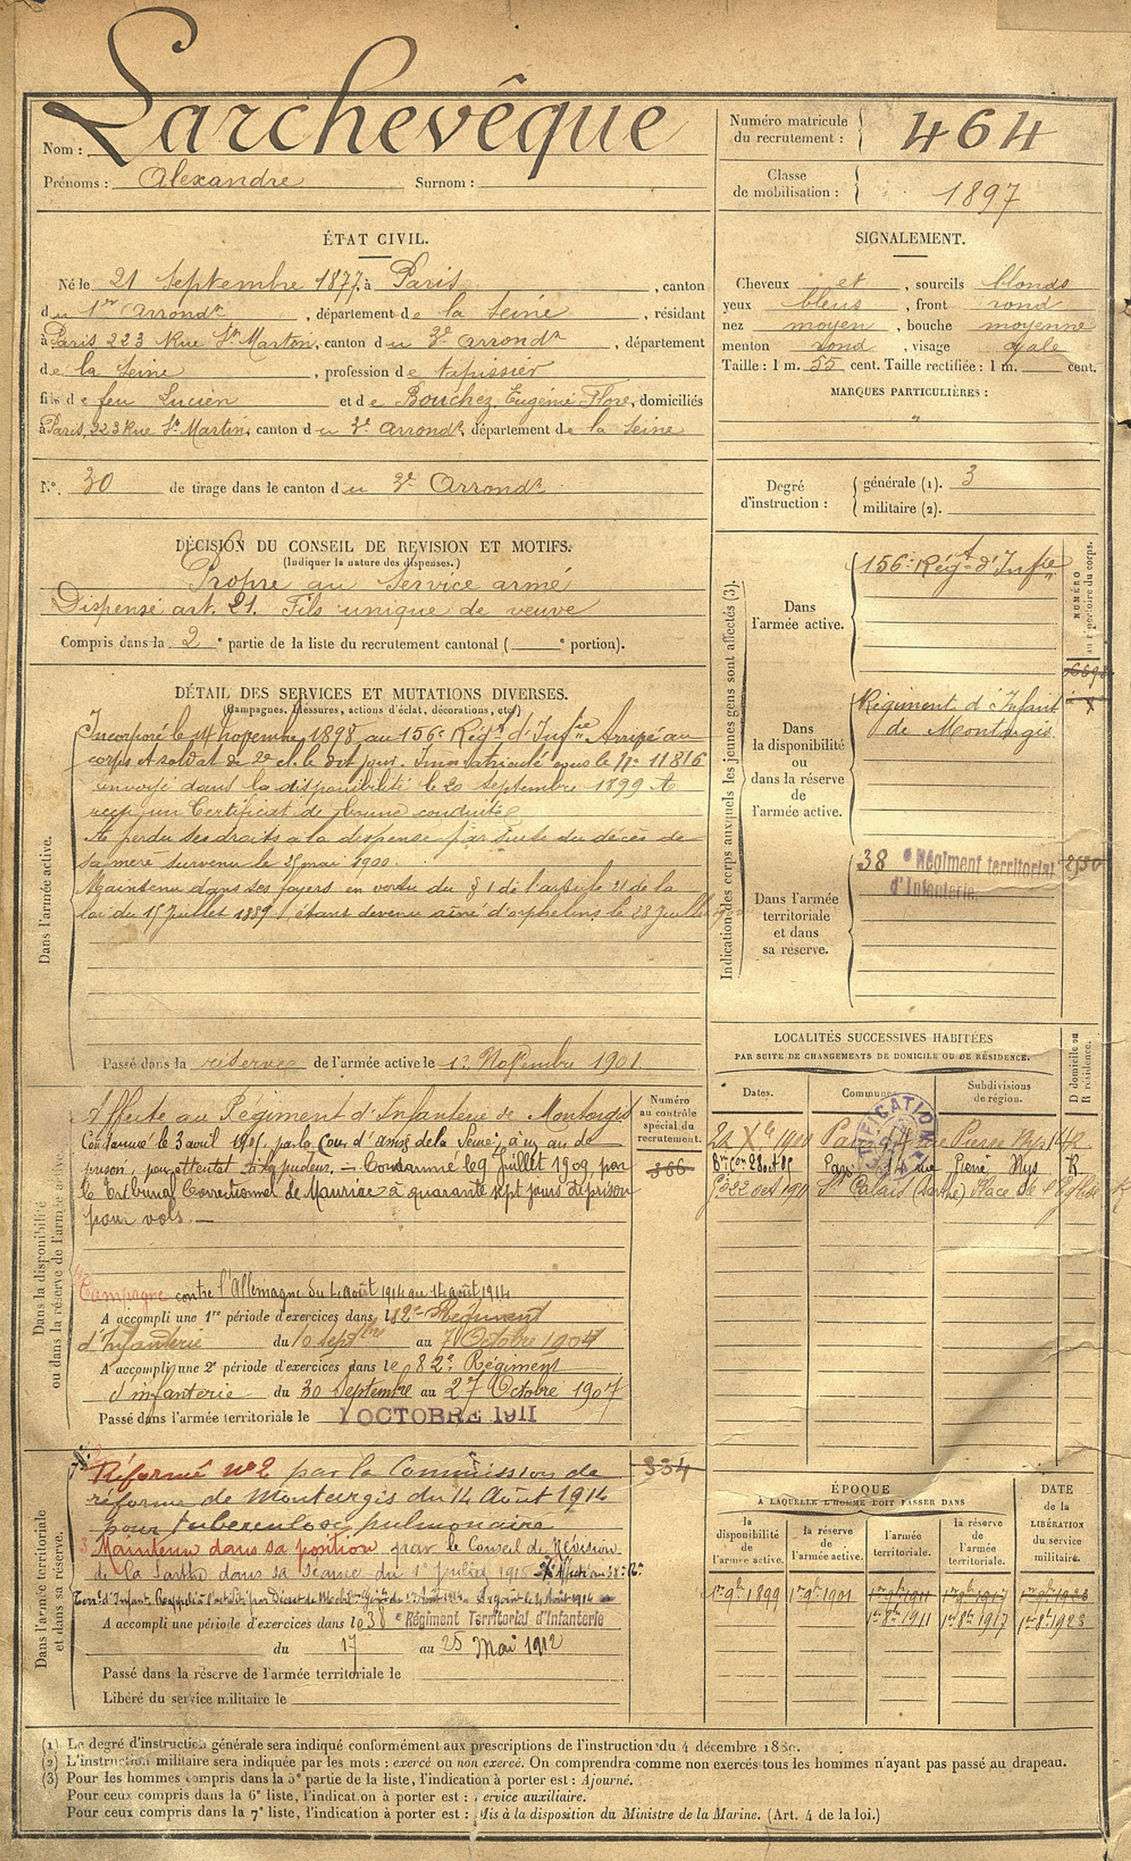 Nom : Larchevêque
Prénoms : Alexandre Surnom :
Numéro matricule
du recrutement : 464
Classe
de mobilisation : 1897
ÉTAT CIVIL.
Né le 21 Septembre 1877, à Paris, canton
du 1er Arrondt, département de la Seine, résidant
à Paris 223 Rue St Martin, canton du 3e Arrondt, département
de la Seine, profession de tapissier
fils de feu Lucien et de Bouchez Eugénie Flore, domiciliés
à Paris, 223 Rue St Martin, canton du 3e Arrondt, département de la Seine
SIGNALEMENT.
Cheveux et, sourcils blonds
yeux bleus, front rond
nez moyen, bouche moyenne
menton rond, visage ovale
Taille : 1 m. 55 cent. Taille rectifiée : 1 m. cent.
MARQUES PARTICULIÈRES :
"
N°. 30 de tirage dans le canton du 3e Arrondt
Degré
d'instruction :
générale (1). 3
militaire (2).
DÉCISION DU CONSEIL DE REVISION ET MOTIFS.
(Indiquer la nature des dispenses.)
Propre au Service armé
Dispensé art. 21. Fils unique de veuve
Compris dans la 2e partie de la liste du recrutement cantonal ( e portion).
DÉTAIL DES SERVICES ET MUTATIONS DIVERSES.
(Campagnes, blessures, actions d'éclat, décorations, etc.)
Dans l'armée active.
Incorporé le 14 novembre 1898 au 156e Régt d'Infie Arrivé au
corps et soldat de 2e cl. le dit jour. Immatriculé sous le N° 11816
envoyé dans la disponibilité le 20 septembre 1899 A
reçu un Certificat de bonne conduite
A perdu ses droits à la dispense par suite du décès de
sa mère survenu le 25 mai 1900.
Maintenu dans ses foyers en vertu du § 1 de l'article 21 de la
loi du 15 Juillet 1889 étant devenu aîné d'orphelins le 28 Juillet
Passé dans la réserve de l'armée active le 1er Novembre 1901
Indication des corps auxquels les jeunes gens sont affectés (3).
NUMÉRO
au répertoire du corps.
Dans
l'armée active.
156e Régt d'Infie
Dans
la disponibilité
ou
dans la réserve
de
l'armée active.
Régiment d'Infant
de Montargis
Dans l'armée
territoriale
et dans
sa réserve.
38e Régiment territorial
d'Infanterie
LOCALITÉS SUCCESSIVES HABITÉES
PAR SUITE DE CHANGEMENTS DE DOMICILE OU DE RÉSIDENCE.
D domicile ou
R résidence.
Dates. Communes. Subdivisions
de région.
Paris 14 rue Pierre Nys
Paris 14 rue Pierre Nys R
22 oct 1911 St Calais (Sarthe) Place de l'Eglise R
Dans la disponibilité
ou dans la réserve de l'armée active.
Numéro
au contrôle
spécial du
recrutement.
366
Affecté au Régiment d'Infanterie de Montargis
Condamné le 3 avril par la Cour d'assises de la Seine, à un an de
prison, pour attentat à la pudeur, — Condamné le 9 Juillet 1909 par
le Tribunal Correctionnel de Mauriac à quarante sept jours de prison
pour vols. —
Campagne contre l'Allemagne du 4 août 1914 au 14 août 1914
A accompli une 1re période d'exercices dans le 82e Régiment
d'Infanterie du 10 Septbre au 7 Octobre 1904
A accompli une 2e période d'exercices dans le 82e Régiment
d'infanterie du 30 Septembre au 27 Octobre 1907
Passé dans l'armée territoriale le 1 OCTOBRE 1911
Dans l'armée territoriale
et dans sa réserve.
334
Réformé n°2 par la Commission de
réforme de Montargis du 14 Août 1914
pour tuberculose pulmonaire
Maintenu dans sa position par le Conseil de révision
de la Sarthe dans sa séance du 1er Juillet 1915
A accompli une période d'exercices dans le 38e Régiment Territorial d'Infanterie
du 17 au 25 Mai 1912
Passé dans la réserve de l'armée territoriale le
Libéré du service militaire le
ÉPOQUE
À LAQUELLE L'HOMME DOIT PASSER DANS
DATE
de la
LIBÉRATION
du service
militaire.
la
disponibilité
de
l'armée active.
la réserve
de
l'armée active.
l'armée
territoriale.
la réserve
de
l'armée
territoriale.
1er 9bre 1899 1er 9bre 1901 1er 9bre 1911 1er 9bre 1917 1er 9bre 1923
1er 8bre 1911 1er 8bre 1917 1er 8bre 1923
(1) Le degré d'instruction générale sera indiqué conformément aux prescriptions de l'instruction du 4 décembre
(2) L'instruction militaire sera indiquée par les mots : exercé ou non exercé. On comprendra comme non exercés tous les hommes n'ayant pas passé au drapeau.
(3) Pour les hommes compris dans la 5e partie de la liste, l'indication à porter est : Ajourné.
Pour ceux compris dans la 6e liste, l'indication à porter est : Service auxiliaire.
Pour ceux compris dans la 7e liste, l'indication à porter est : Mis à la disposition du Ministre de la Marine. (Art. 4 de la loi.)